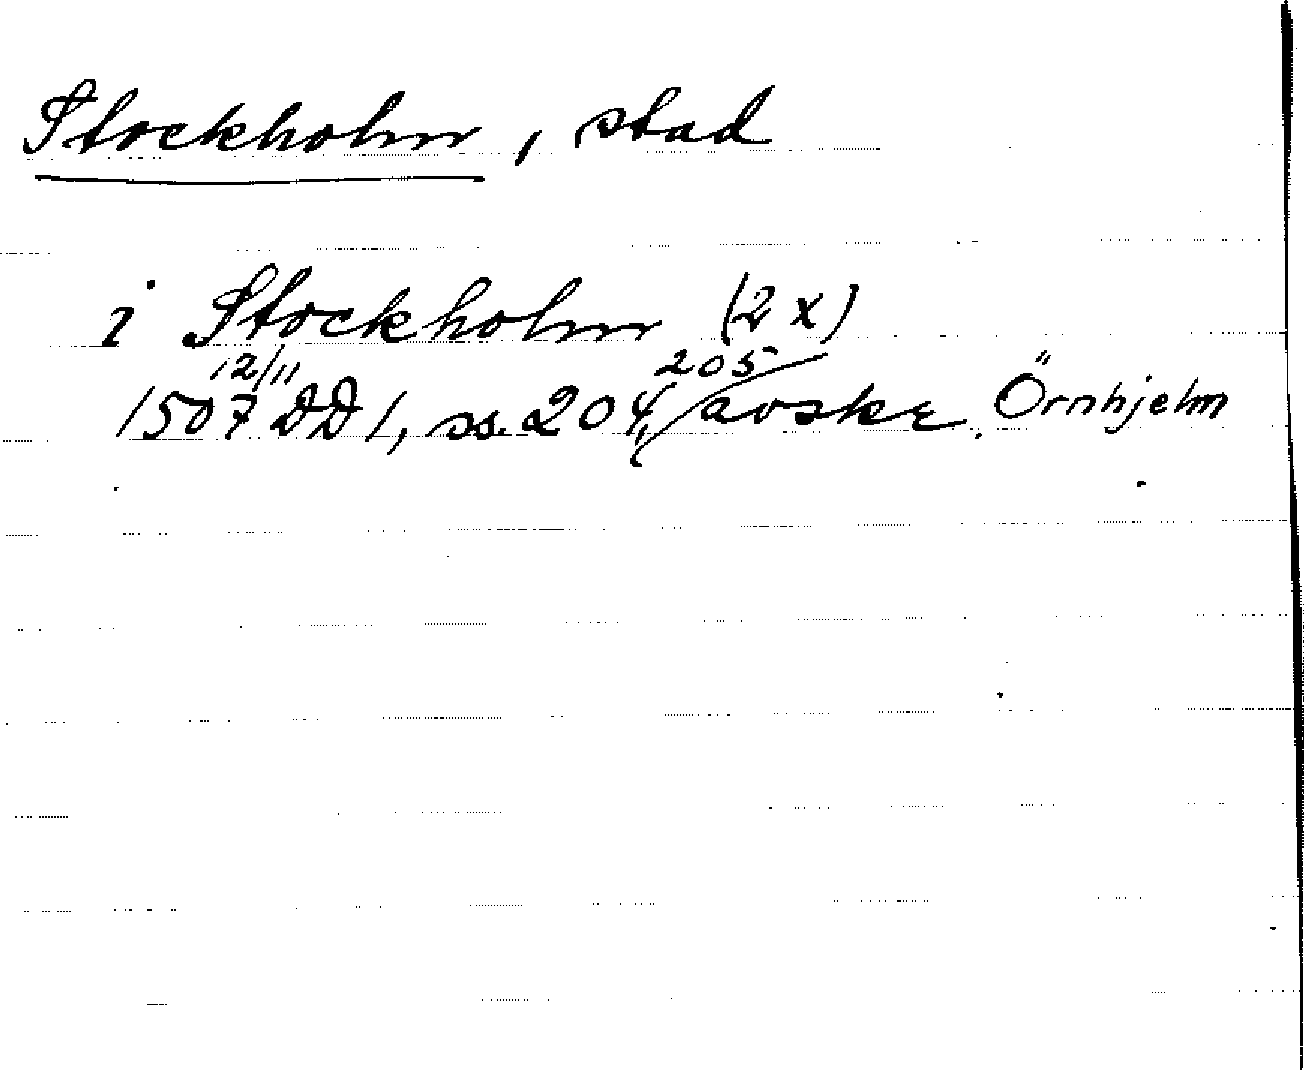 Stockholm, stad
i Stockholm (2 x)
1507 12/11 DD 1, ss. 204, 205 avskr. Örnhjelm